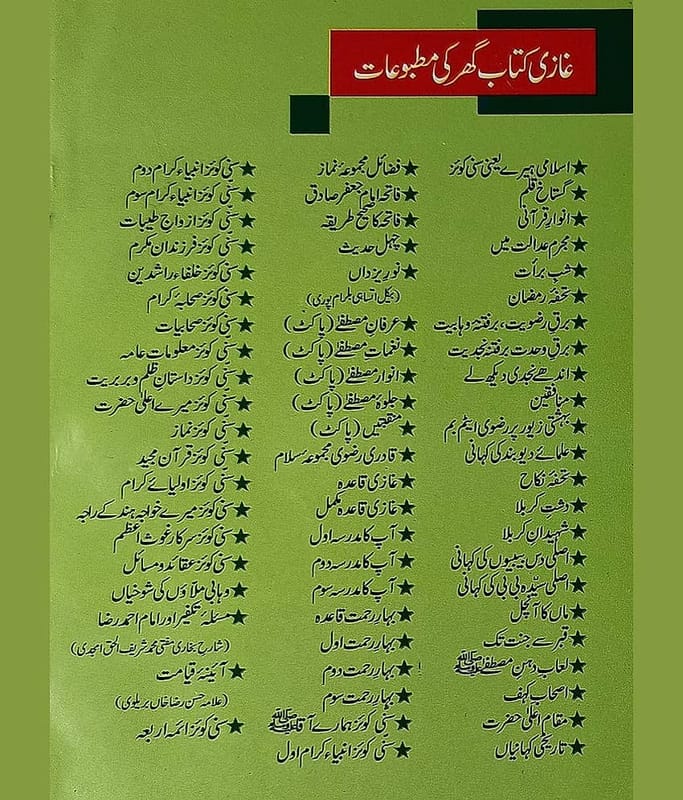 غازی کتاب گھر کی مطبوعات
★ اسلامی ہیرے یعنی سنی کوئز
★ گستاخ قلم
★ انوار قرآنی
★ مجرم عدالت میں
★ شب برأت
★ تحفۂ رمضان
★ برق رضویت، بر فتنۂ وہابیت
★ برق وحدت بر فتنۂ نجدیت
★ اندھے نجدی دیکھ لے
★ منافقین
★ بہشتی زیور پر رضوی ایٹم بم
★ علمائے دیوبند کی کہانی
★ تحفۂ نکاح
★ دشت کربلا
★ شہیدان کربلا
★ اصلی دس بیبیوں کی کہانی
★ اصلی سیدہ بی بی کی کہانی
★ ماں کا آنچل
★ قبر سے جنت تک
★ لعاب دہن مصطفےٰ ﷺ
★ اصحاب کہف
★ مقام اعلیٰ حضرت
★ تاریخی کہانیاں
★ فضائل مجموعۂ نماز
★ فاتحہ امام جعفر صادق
★ فاتحہ کا صحیح طریقہ
★ چہل حدیث
★ نور یزداں
(بیکل اتساہی بلرام پوری)
★ عرفان مصطفےٰ (پاکٹ)
★ نغمات مصطفےٰ (پاکٹ)
★ انوار مصطفےٰ (پاکٹ)
★ جلوۂ مصطفےٰ (پاکٹ)
★ منقبتیں (پاکٹ)
★ قادری رضوی مجموعہ سلام
★ غازی قاعدہ
★ غازی قاعدہ مکمل
★ آپ کا مدرسہ اول
★ آپ کا مدرسہ دوم
★ آپ کا مدرسہ سوم
★ بہار رحمت قاعدہ
★ بہار رحمت اول
★ بہار رحمت دوم
★ بہار رحمت سوم
★ سنی کوئز ہمارے آقا ﷺ
★ سنی کوئز انبیاء کرام اول
★ سنی کوئز انبیاء کرام دوم
★ سنی کوئز انبیاء کرام سوم
★ سنی کوئز ازواج طیبات
★ سنی کوئز فرزندان مکرم
★ سنی کوئز خلفاء راشدین
★ سنی کوئز صحابۂ کرام
★ سنی کوئز صحابیات
★ سنی کوئز معلومات عامہ
★ سنی کوئز داستان ظلم و بربریت
★ سنی کوئز میرے اعلیٰ حضرت
★ سنی کوئز نماز
★ سنی کوئز قرآن مجید
★ سنی کوئز اولیائے کرام
★ سنی کوئز میرے خواجہ ہند کے راجہ
★ سنی کوئز سرکار غوث اعظم
★ سنی کوئز عقائد و مسائل
★ وہابی ملاؤں کی شوخیاں
★ مسئلۂ تکفیر اور امام احمد رضا
(شارح بخاری مفتی محمد شریف الحق امجدی)
★ آئینۂ قیامت
(علامہ حسن رضا خاں بریلوی)
★ سنی کوئز ائمہ اربعہ